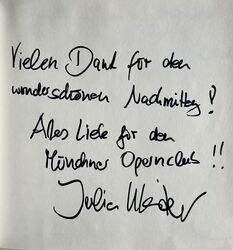 Vielen Dank für den
wunderschönen Nachmittag!
Alles Liebe für den
Münchner Opernclub!!
Julia